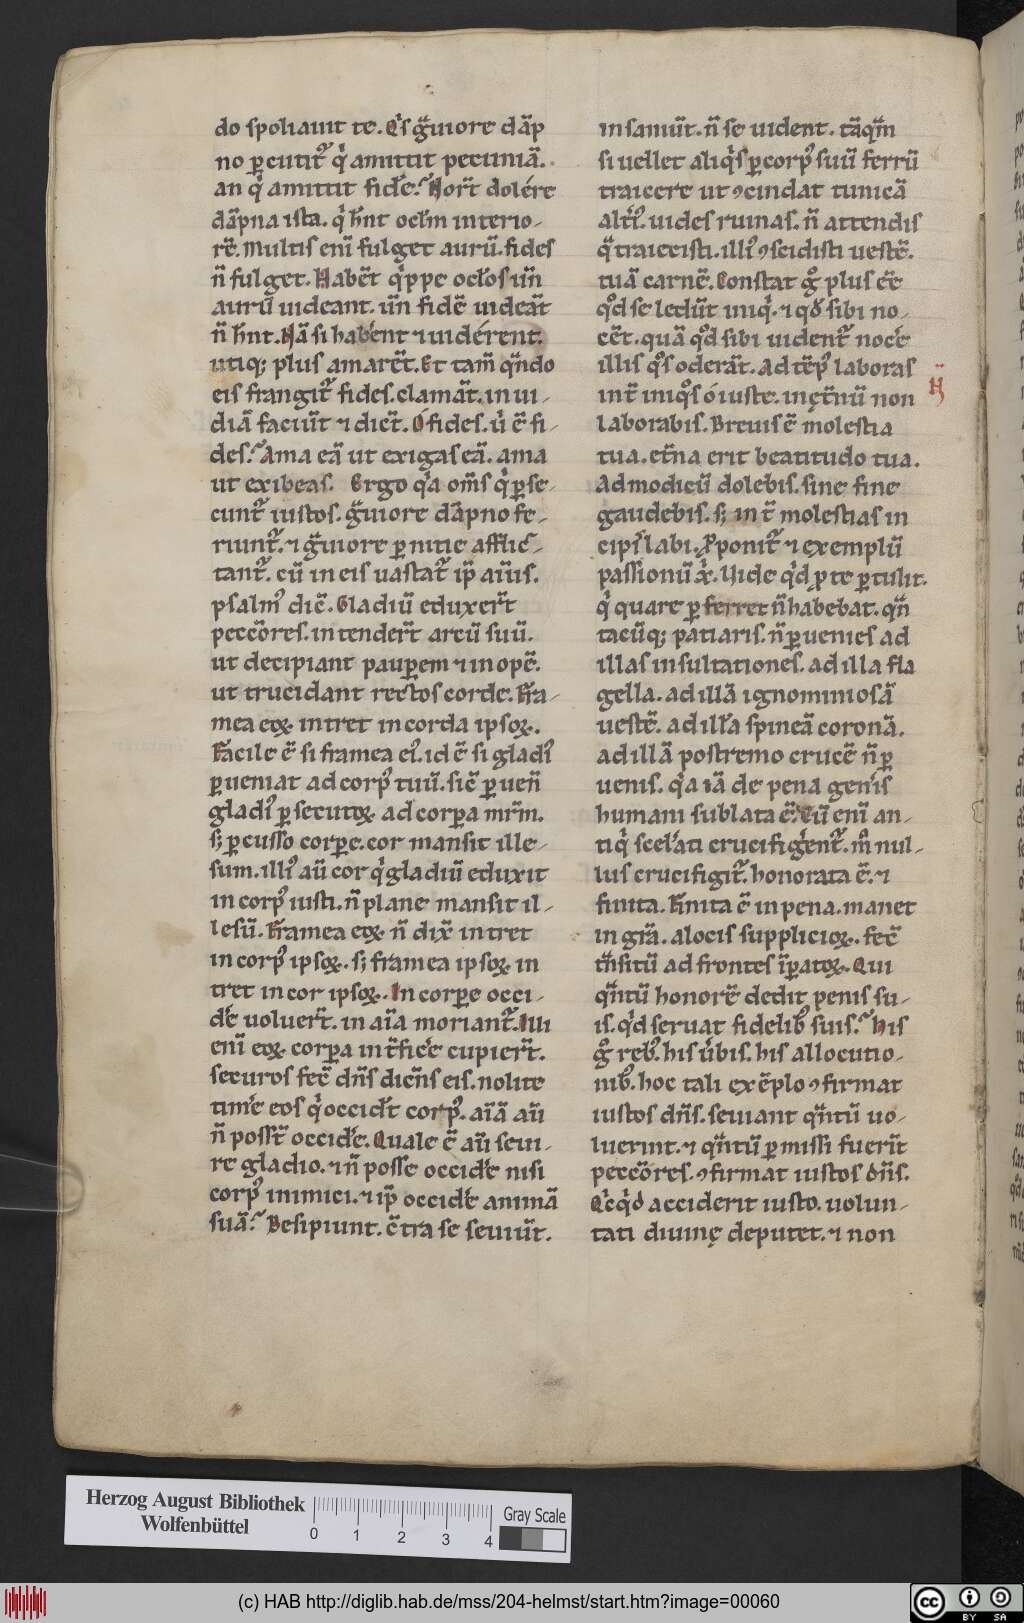 do spoliauit te. Q's g̃uiore dãp
no ꝑcutit᷑ q̇ amittit pecuniã.
an q̇ amittit fidẽ.? Nor̃t dolére
dãpna ista. q̇ hñt ocłm interio-
rẽ. Multis eni̅ fulget aurũ. fides
ñ fulget. Habẽt q̇ppe ocłos un̄
aurũ uideant. un̄ fidẽ uideãt
ñ hñt. Nã si habẽnt ⁊ uidérent.
utiq; plus amarẽt. Et tam̃ qñdo
eis frangit᷑ fides. clamãt. in ui-
diã faciũt ⁊ dicẽt. O fides. u̇ ẽ fi-
des.? Ama eã ut exigas eã. ama
ut exibeas. Ergo q̇a om̃s q̇ ꝑse-
cunt᷑ iustos. g̃uiore dãpno fe-
riunt᷑. ⁊ g̃uiore ꝑnitie afflic-
tant᷑. cũ in eis uastat᷑ ip̃ aĩis.
psalmꝰ dic̃. Gladiũ eduxer̃t
pecc̃ores. intender̃t arcũ suũ.
ut decipiant pauꝑem ⁊ inopẽ.
ut trucidant rectos corde. Fra-
mea eoꝝ intret in corda ipsoꝝ.
Facile ẽ si framea eiꝰ. id ẽ si gladiꝰ
ꝑueniat ad corpꝰ tuũ. sic̃ ꝑuen̄
gladiꝰ ꝑsecutoꝝ ad corpa mr̃m.
s; ꝑcusso corpe. cor mansit ille-
sum. illiꝰ aũ cor q̇ gladiũ eduxit
in corpꝰ iusti. ñ plane mansit il-
lesũ. Framea eoꝝ ñ dix̃ intret
in corpꝰ ipsoꝝ. s; framea ipsoꝝ in
tret in cor ipsoꝝ. In corpe occi-
dẽ uoluer̃t. in aĩa moriant᷑. Illi
eni̅ eoꝝ corpa int̃ficẽ cupier̃t.
securos fec̃ dñs dicñs eis. nolite
timẽ eos q̇ occidũt corpꝰ. aĩã aũ
ñ possũt occidẽ. Quale ẽ aũ seui-
re gladio. ⁊ ñ posse occidẽ nisi
corpꝰ inimici. ⁊ ip̃ occidẽ animã
suã.? Desipiunt. c̃tra se seuiũt.
insaniũt. ñ se uident. tãqm̃
si uellet aliq̇s ꝑ corpꝰ suũ ferrũ
traicere ut ꝯcindat tunicã
alt̃iꝰ. uides ruinas. ñ attendis
q̃ traiecisti. illiꝰ ꝯscidisti uestẽ.
tuã carnẽ. Constat g̊ plus ẽe
q̊d se ledũt iniq̇. ⁊ qđ sibi no-
cẽt. quã q̊d sibi uident᷑ nocẽ
illis q̊s oderãt. Ad tẽpꝰ laboras
int̃ iniq̊s ó iuste. inęt̃nũ non
laborabis. Breuis ẽ molestia
tua. et̃na erit beatitudo tua.
Ad modicũ dolebis. sine fine
gaudebis. s; int̃ molestias in
cipis labi. Ꝓponit᷑ ⁊ exemplũ
passionũ xp̃i. Vide q̇d ꝓ te ꝑtulit.
q̇ quare ꝑferret ñ habebat. qñ
tacũq; patiaris. ñ ꝑuenies ad
illas insultationes. ad illa fla
gella. ad illã ignominiosã
uestẽ. ad illã spineã coronã.
ad illã postremo crucẽ ñ ꝑ
uenis. q̇a iã de pena genĩs
humani sublata ẽ. Cũ eni̅ an-
tiq̇ scelãti crucifigẽnt᷑. m̊ nul-
lus crucifigit᷑. honorata ẽ. ⁊
finita. Finita ẽ in pena. manet
in gr̃a. a locis supplicioꝝ. fec̃
tr̃nsitũ ad frontes ip̃atoꝝ. Qui
qñtũ honorẽ dedit penis su-
is. q̇d seruat fidelibꝰ suis.? His
g̊ rebꝰ. his ũbis. his allocutio-
nibꝰ. hoc tali exẽplo ꝯfirmat
iustos dñs. seuiant qñtũ uo-
luerint. ⁊ qñtũ ꝑmissi fuer̃it
pecc̃ores. ꝯfirmat iustos dñs.
Q̇cq̇d acciderit iusto. uolun-
tati diuinę deputet. ⁊ non
N̈
Herzog August Bibliothek
Wolfenbüttel
0 1 2 3 4
Gray Scale
(c) HAB http://diglib.hab.de/mss/204-helmst/start.htm?image=00060
cc BY SA